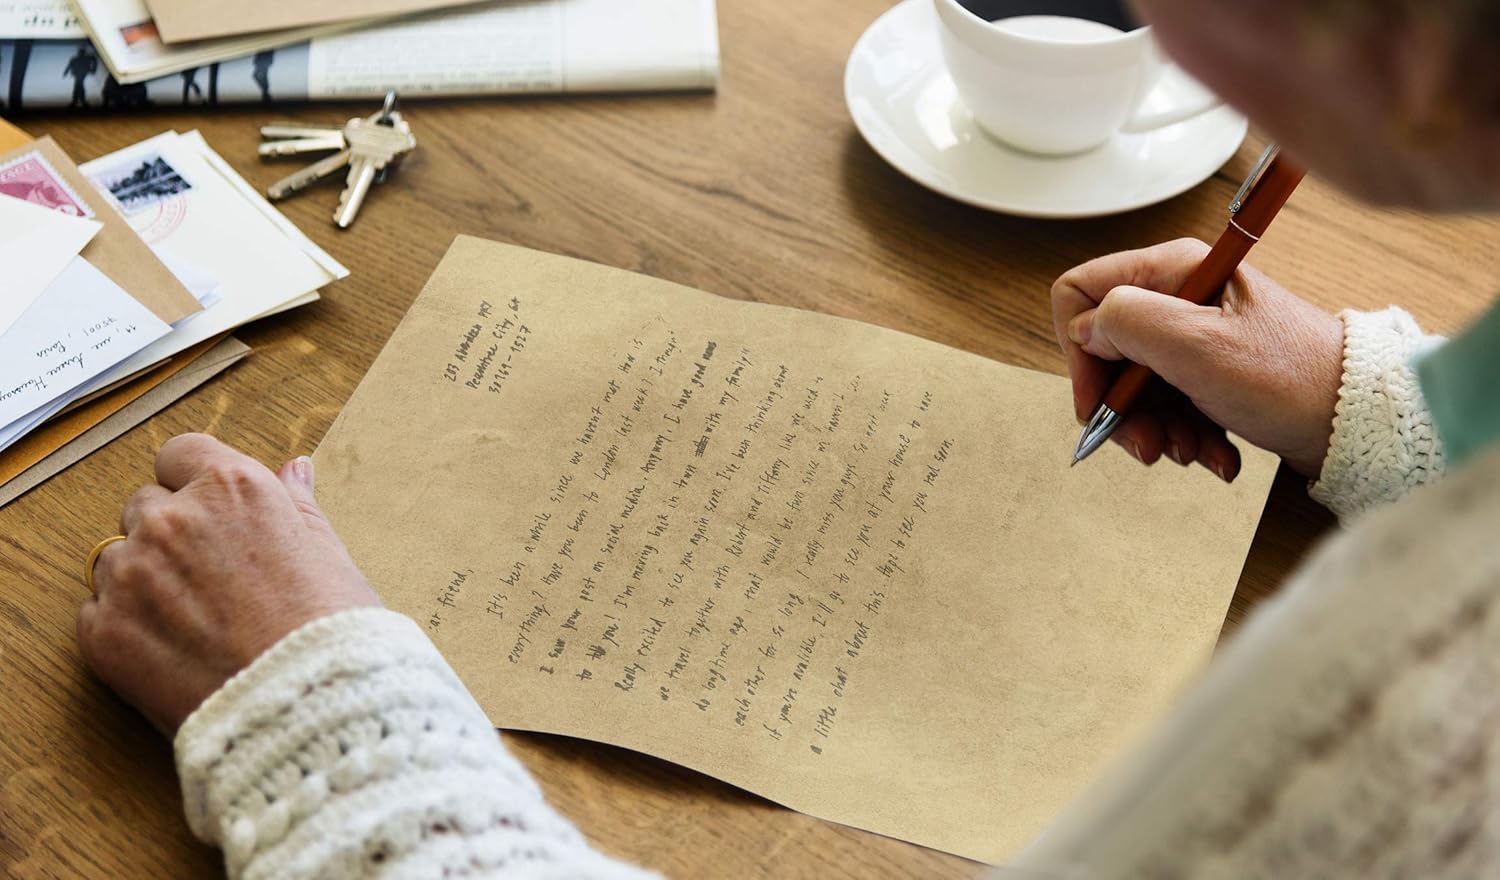 203 Aberdeen PKY
Peachtree City, GA
30269-1527
ear friend,
It's been a while since we haven't met. How is
everything? Have you been to London last week? I though
I saw your post on social media. Anyway, I have good news
to you! I'm moving back in town with my family!!
Really excited to see you again soon. I've been thinking about
we travel together with Robert and Tiffany like we used
do long time ago, that would be fun since we haven't
each other for so long. I really miss you guys. So next
if you're avalible I'll go to see you at your house to have
a little chat about this. Hope to see you real soon.
11, rue
75001, Paris